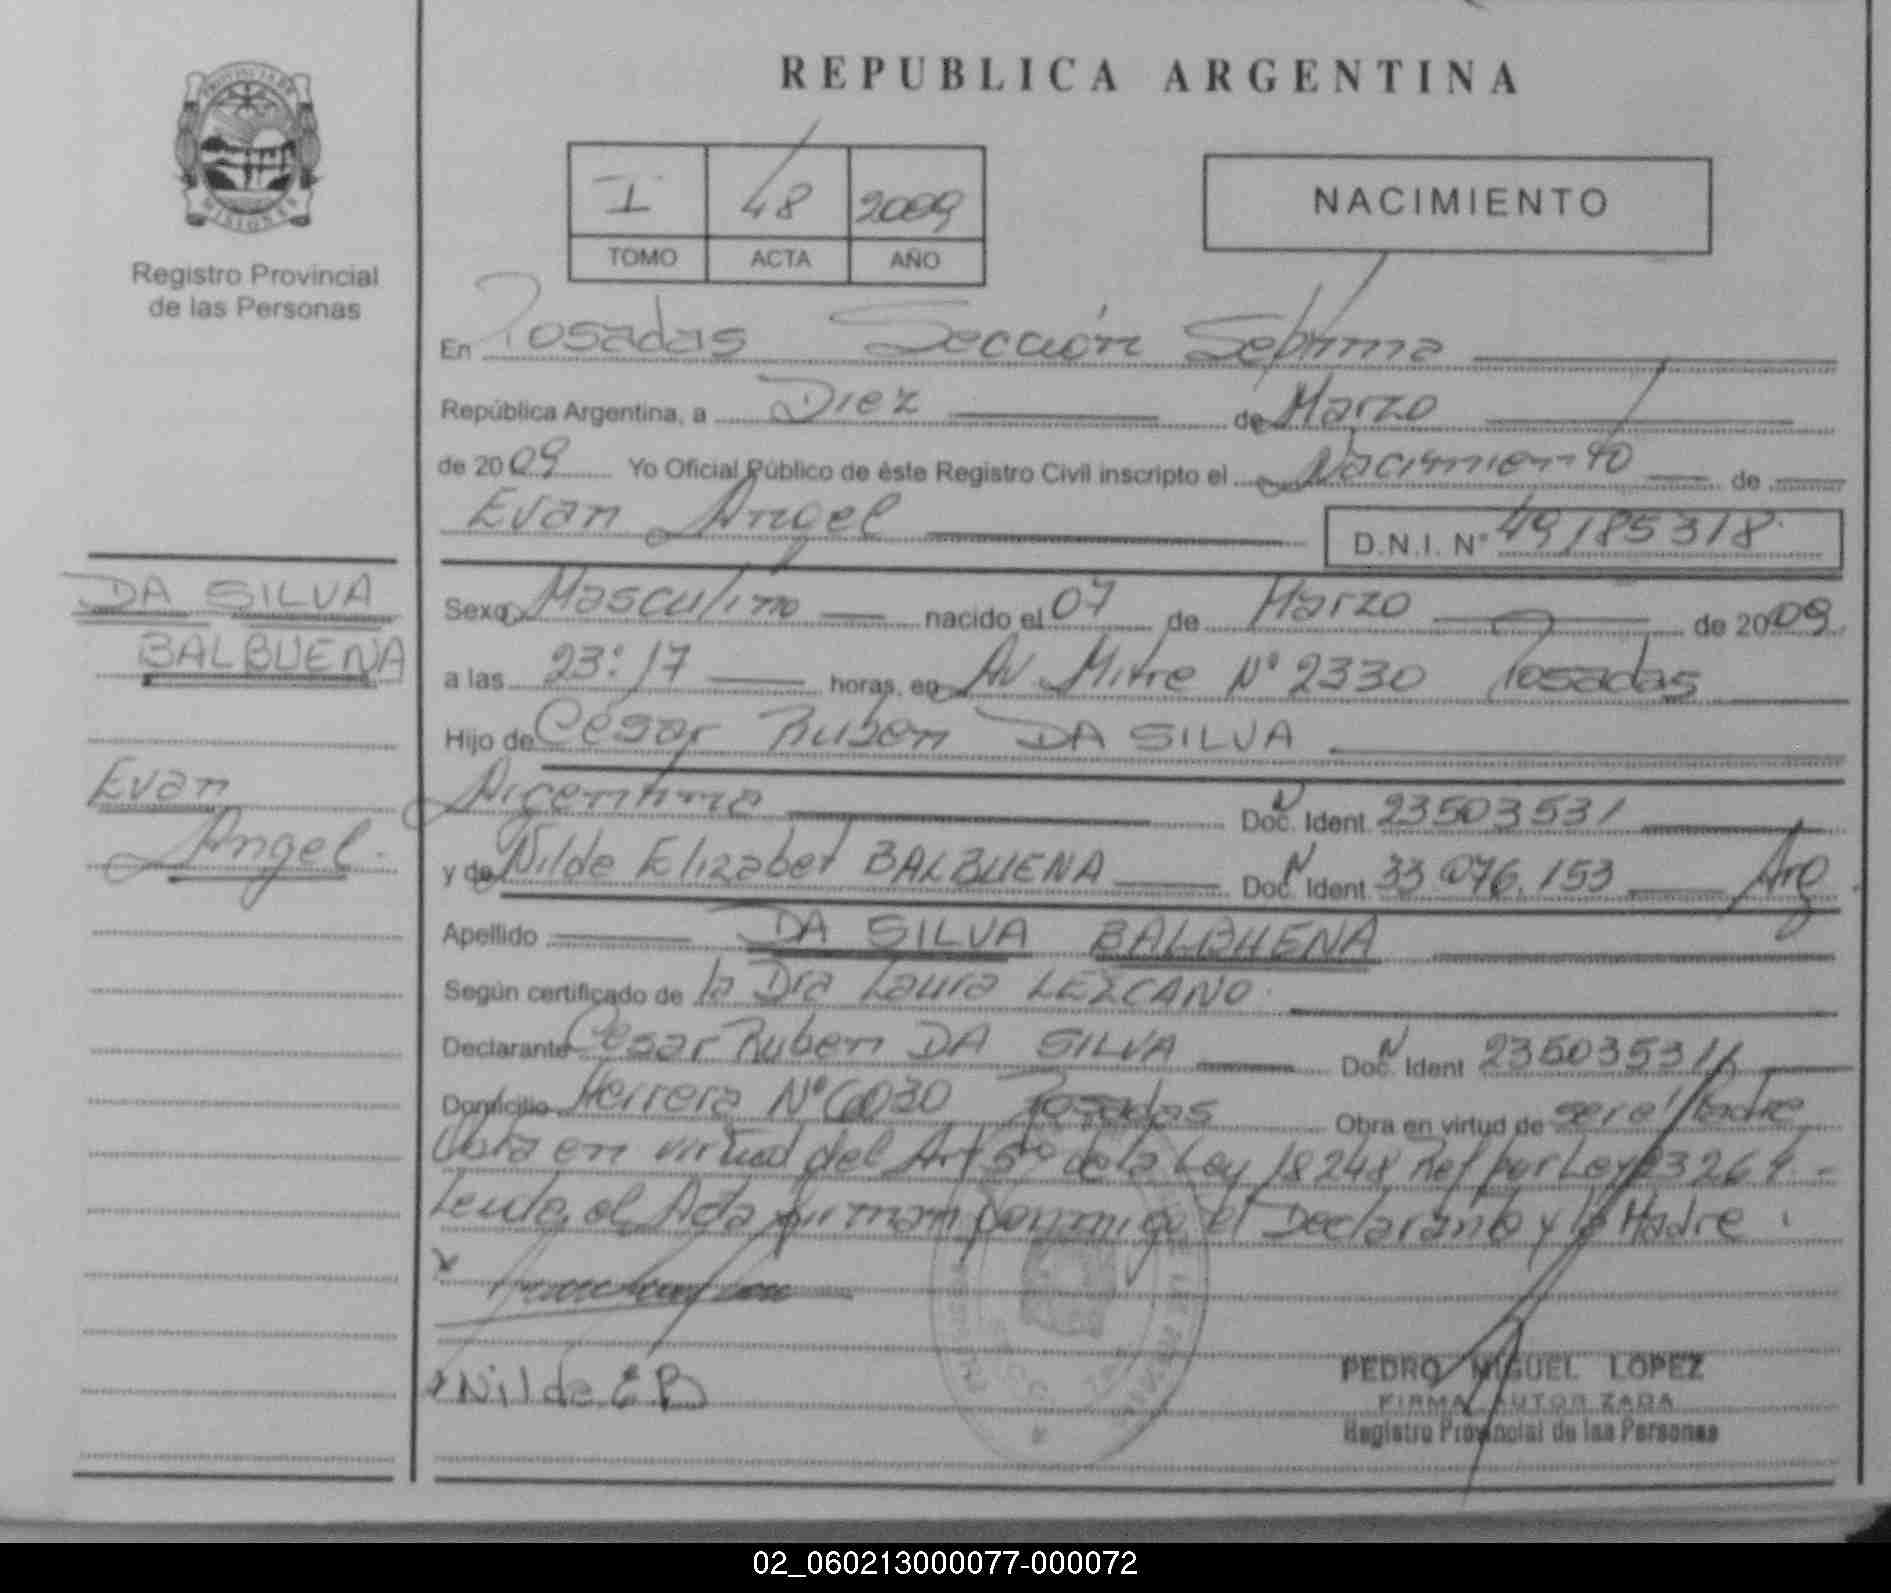 PROVINCIA DE
MISIONES
Registro Provincial
de las Personas
REPUBLICA ARGENTINA
I 48 2009
TOMO ACTA AÑO
NACIMIENTO
En Posadas Sección Séptima
República Argentina, a Diez de Marzo
de 2009 Yo Oficial Público de éste Registro Civil inscripto el Nacimiento de
Evan Angel D.N.I. Nº 49185318
DA SILVA
BALBUENA
Evan
Angel.
Sexo Masculino nacido el 07 de Marzo de 2009
a las 23:17 horas, en Av Mitre Nº 2330 Posadas
Hijo de César Rubén DA SILVA
Argentina Doc. Ident. 23503531
y de Nilde Elizabet BALBUENA Doc. Ident. 33 076.153 Arg.
Apellido DA SILVA BALBUENA
Según certificado de la Dra Laura LEZCANO.
Declarante César Ruben DA SILVA Doc. Ident 23503531
Domicilio Herrera Nº 6030 Posadas Obra en virtud de ser el Padre
Obra en virtud del Art 5to de la Ley 18248 Ref por Ley 23264.-
Leída el Acta firman conmigo el Declarante y la Madre.
x
x Nilde E B
PEDRO MIGUEL LOPEZ
FIRMA AUTORIZADA
Registro Provincial de las Personas
02_060213000077-000072